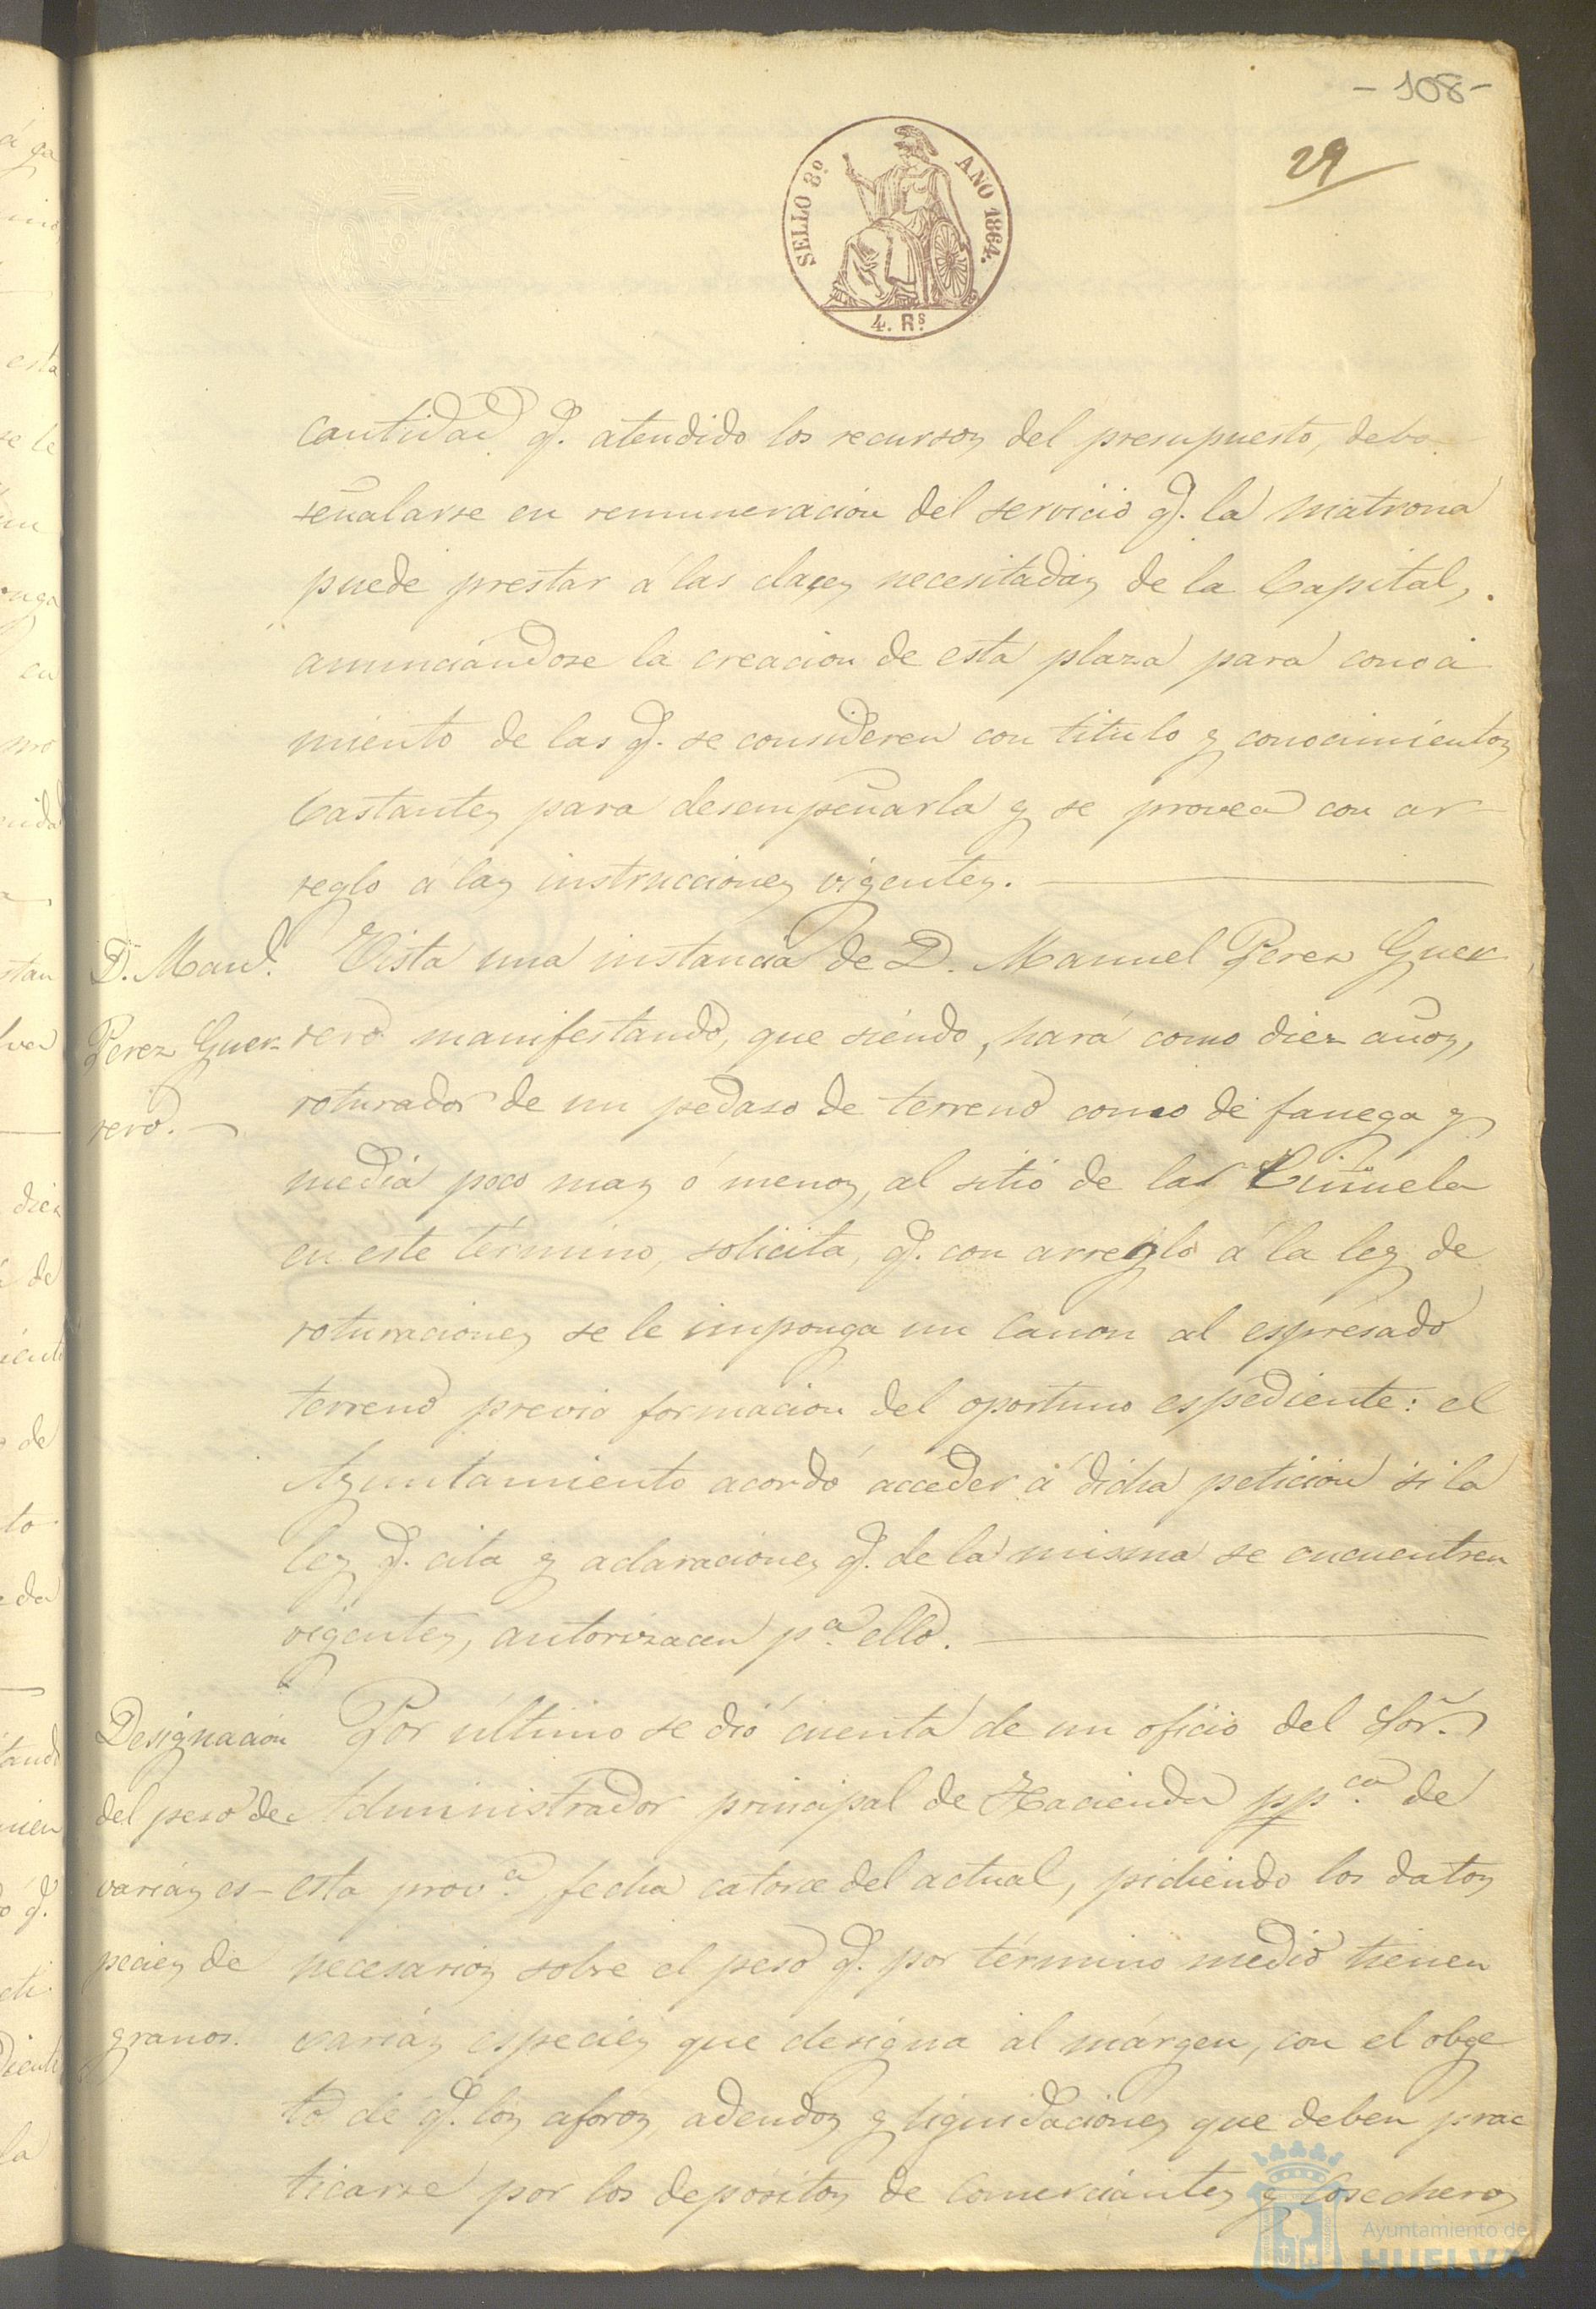 - 108 -
29
SELLO 8º AÑO 1864.
4. Rs
cantidad q.e atendido los recursos del presupuesto, deba
señalarse en remuneracion del servicio q.e la matrona
puede prestar á las clases necesitadas de la Capital,
anunciándose la creacion de esta plaza para conoci
miento de las q.e se consideren con titulo y conocimientos
bastantes para desempeñarla y se provea con ar
reglo á las instrucciones vigentes.
D. Man.l
Perez Guer
rero.
Vista una instancia de D. Manuel Perez Guer
rero manifestando, que siendo, hará como diez años,
roturador de un pedaso de terreno como de fanega y
media poco mas ó menos, al sitio de las
en este término, solicita, q.e con arreglo á la ley de
roturaciones se le imponga un canon al espresado
terreno previa formacion del oportuno espediente: el
Ayuntamiento acordó acceder á dicha peticion si la
ley q.e cita y aclaraciones q.e de la misma se encuentren
vigentes, autorizacen p.a ello.
Designacion
del peso de
varias es-
pecies de
granos.
Por último se dió cuenta de un oficio del Sor.
Administrador principal de Hacienda pp.ca de
esta prov.a, fecha catorce del actual, pidiendo los datos
necesarios sobre el peso q.e por término medio tienen
varias especies que designa al márgen, con el obge
to de q.e los aforos, adeudos y liquidaciones que deben prac
ticarse por los depósitos de Comerciantes y Cosecheros
Ayuntamiento de
HUELVA